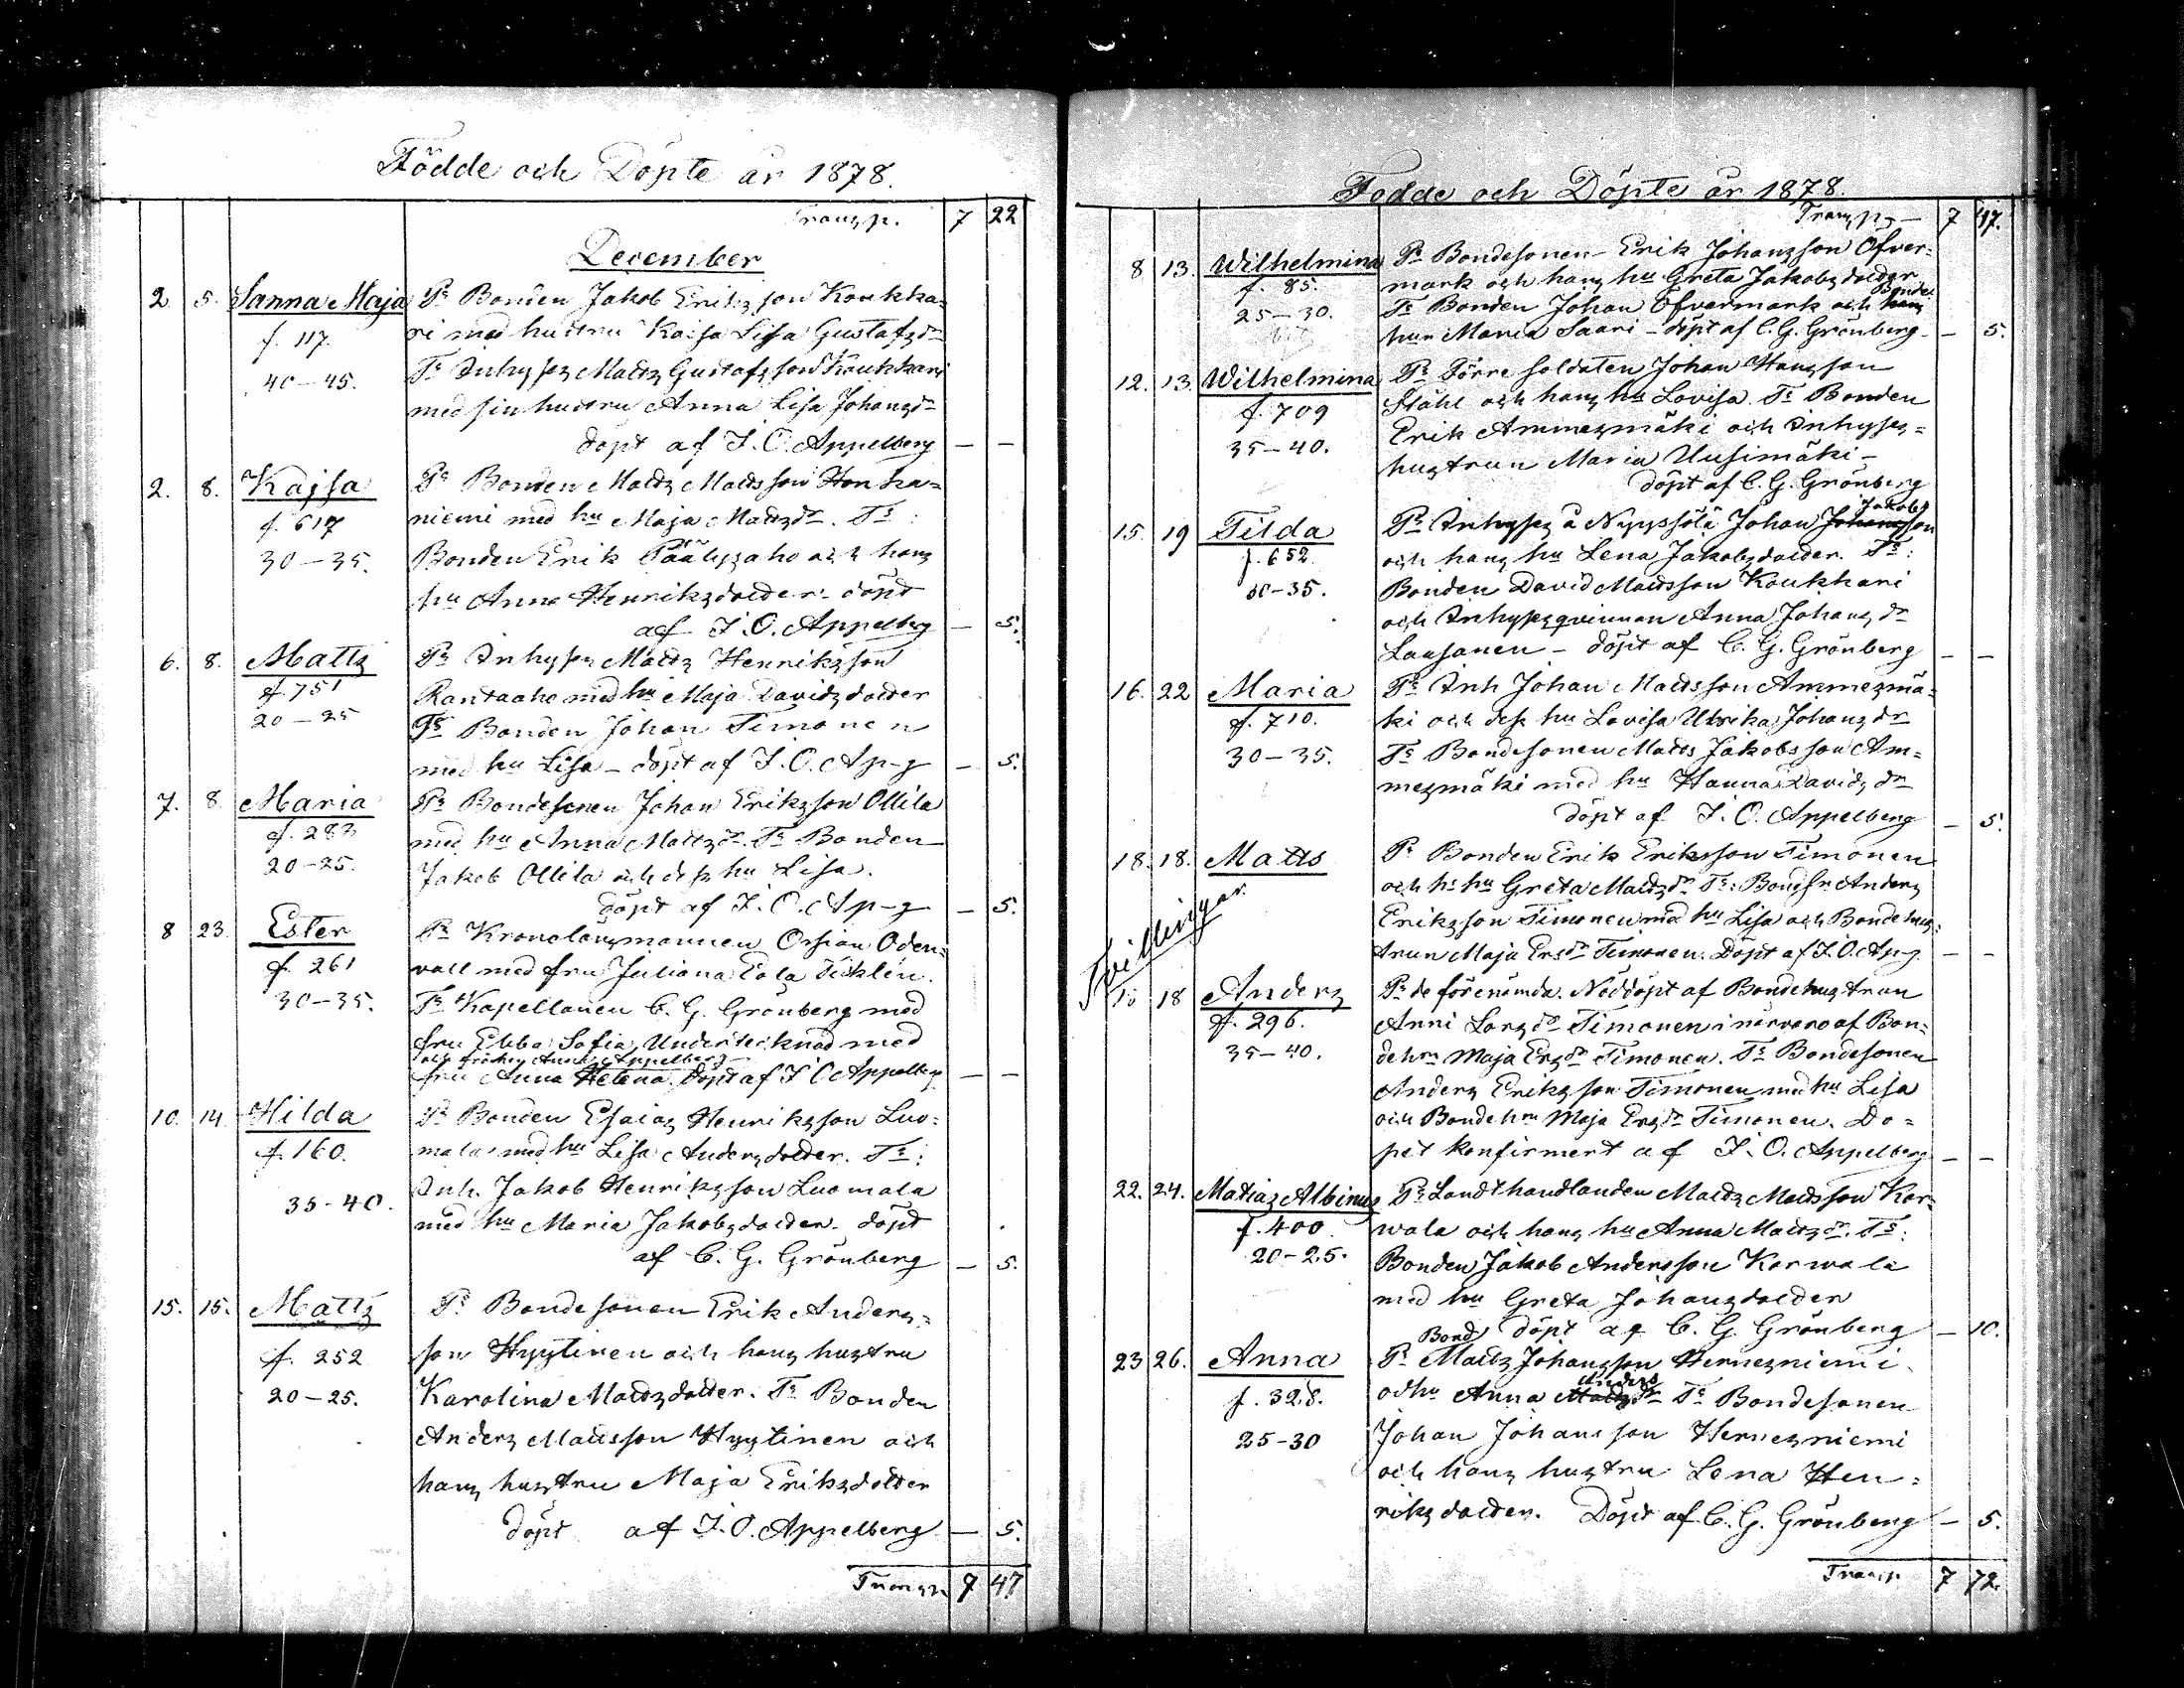 Födde och Döpte år 1878.
Transp. 7 22
December
2 5. Sanna Maja Pr Bonden Jakob Erikssson Koukka-
f. 117. ri med hustru Kaisa Lisa Gustafsdr
40-45. Tr Inhyses Matts Gustafsson Koukkari
med sin hustru Anna Lisa Johansdr
döpt af J. O. Appelberg — —
2. 8. Kajsa Pr Bonden Matts Mattsson Honka-
f. 617 niemi med hu Maja Mattsdr. Tr:
30-35. Bonden Erik Päälysaho och hans
hu Anna Henriksdotter - döpt
af J. O. Appelberg — 5.
6. 8. Matts Pr Inhyses Matts Henriksson
f. 751 Rantaaho med hu Maja Davidsdotter
20-25 Tr Bonden Johan Timonen
med hu Lisa - döpt af J. O. Ap-g — 5.
7. 8. Maria Pr Bondesonen Johan Eriksson Ollila
f. 283 med hu Anna Mattsdr. Tr Bonden
20-25. Jakob Ollila och dess hu Lisa.
döpt af J. O. Ap-g — 5.
8 23. Ester Pr Kronolänsmannen Ossian Oden-
f. 261 wall med fru Juliana
30-35. Tr Kapellanen C. G. Grönberg med
fru Ebba Sofia, Undertecknad med
och fröken Anna Appelberg
fru Anna Helena, döpt af J O Appelberg — —
10. 14. Hilda Pr Bonden Esaias Henriksson Luo-
f. 160. mala med hu Lisa Andersdotter. Tr:
35-40. Inh. Jakob Henriksson Luomala
med hu Maria Jakobsdotter - döpt
af C. G. Grönberg — 5.
15. 15. Matts Pr Bondesonen Erik Anders-
f. 252 son Hyytinen och hans hustru
20-25. Karolina Mattsdotter. Tr Bonden
Anders Mattsson Hyytinen och
hans hustru Maja Eriksdotter
döpt af J. O. Appelberg — 5.
Transp 7 47
Födde och Döpte år 1878.
Transp — 7 47.
8 13. Wilhelmina Pr Bondesonen Erik Johansson Öfver-
f. 85. mark och hans hu Greta Jakobsdotter
Bonde
25-30. Tr Bonden Johan Öfvermark och hans
hur Maria Saari - döpt af C. G. Grönberg — 5.
12. 13 Wilhelmina Pr Förre soldaten Johan Hansson
f. 709 Ståhl och hans hu Lovisa. Tr Bonden
35-40. Erik Ammesmäki och Inhyses-
hustrun Maria Uusimäki -
döpt af C. G. Grönberg
Jakobs
15. 19 Tilda Pr Inhyses å Nyyssölä Johan Johansson
f. 652. och hans hu Lena Jakobsdotter. Tr:
30-35. Bonden David Mattsson Koukkari
och Inhysesqvinnan Anna Johansdr
Lausanen - döpt af C. G. Grönberg — —
16. 22 Maria Pr Inh Johan Mattsson Ammesmä-
f. 710. ki och dess hu Lovisa Ulrika Johansdr
30-35. Tr Bondesonen Matts Jakobsson Am-
mesmäki med hu Hanna Davidsdr
döpt af J. O. Appelberg — 5.
18. 18. Matts Pr Bonden Erik Eriksson Timonen
och hs hu Greta Mattsdr Tr: Bondsn Anders
Eriksson Timonen med hu Lisa och Bondehus-
trun Maja Ersdr Timonen. Döpt af J. O. Ap-g. — —
Tvillingar
18 18 Anders Pr de förenämda. Nöddöpt af Bondehustrun
f. 296. Anni Larsdr Timonen i närvaro af Bon-
35-40. dehrn Maja Ersdr Timonen. Tr Bondesonen
Anders Eriksson Timonen med hu Lisa
och Bondehrn Maja Ersdr Timonen. Do-
pet konfirmert af J. O. Appelberg — —
22. 24. Matias Albinus Pr Landthandlanden Matts Mattsson Kar-
f. 400 wala och hans hu Anna Mattsdr. Tr:
20-25. Bonden Jakob Andersson Karwala
med hu Greta Johansdotter
döpt af C. G. Grönberg — 10.
Bond
23 26. Anna Pr Matts Johansson Hernesniemi
Anders
f. 328. o hu Anna Mattsdr Tr Bondesonen
25-30 Johan Johansson Hernesniemi
och hans hustru Lena Hen-
riksdotter. Döpt af C. G. Grönberg — 5.
Transp 7 72.